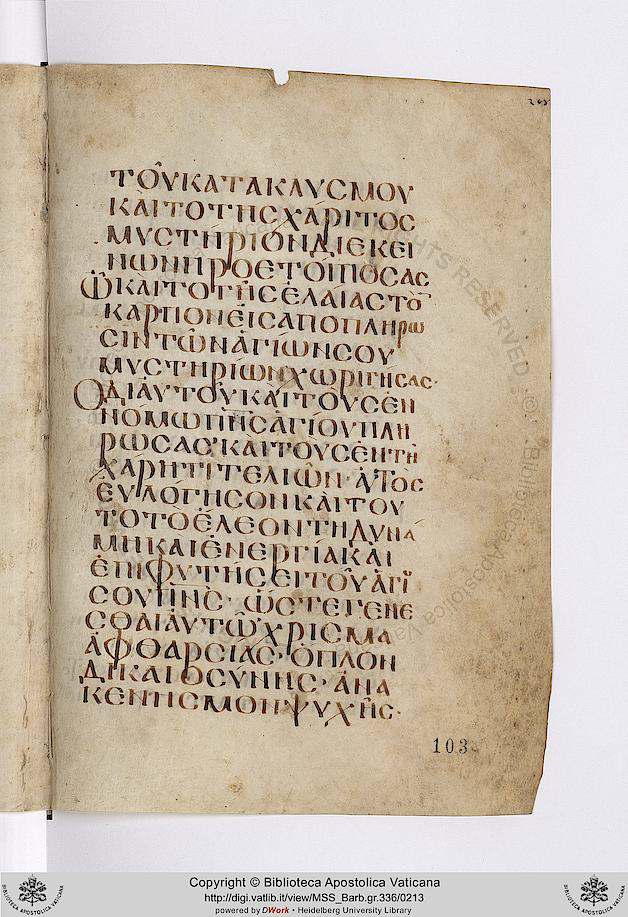 205
ΤΟΥΚΑΤΑΚΛΥΣΜΟΥ
ΚΑΙΤΟΤΗΣΧΑΡΙΤΟΣ
ΜΥΣΤΗΡΙΟΝΔΙΕΚΕΙ
ΝΩΝΠΡΟΕΤΟΙΠΟΣΑΣ
ΩΚΑΙΤΟΤΗΣΕΛΑΙΑΣΤΟ
ΚΑΡΠΟΝΕΙΣΑΠΟΠΛΗΡω
ΣΙΝΤΩΝΑΓΙΩΝΣΟΥ
ΜΥΣΤΗΡΙΩΝΧΩΡΙΓΗΣΑΣ·
ΟΔΙΑΥΤΟΥΚΑΙΤΟΥΣΕΝ
ΝΟΜΩΠΝΣΑΓΙΟΥΠΛΗ
ΡΩΣΑΣ·ΚΑΙΤΟΥΣΕΝΤΗ
ΧΑΡΗΤΙΤΕΛΙΩΝ·ΑΥΤΟΣ
ΕΥΛΟΓΗΣΟΝΚΑΙΤΟΥ
ΤΟΤΟΕΛΕΟΝΤΗΔΥΝΑ
ΜΗΚΑΙΕΝΕΡΓΙΑΚΑΙ
ΕΠΙΦΥΤΗΣΕΙΤΟΥΑΓΙΟΥ
ΣΟΥΠΝΣ·ΩΣΤΕΓΕΝΕ
ΣΘΑΙΑΥΤΩΧΡΙΣΜΑ
ΑΦΘΑΡΣΙΑΣ·ΟΠΛΟΝ
ΔΙΚΑΙΟΣΥΝΗΣ·ΑΝΑ
ΚΕΝΤΗΣΜΟΝΨΥΧΗΣ·
103
ALL RIGHTS RESERVED
© Biblioteca Apostolica Vaticana
Copyright © Biblioteca Apostolica Vaticana
http://digi.vatlib.it/view/MSS_Barb.gr.336/0213
powered by DWork · Heidelberg University Library